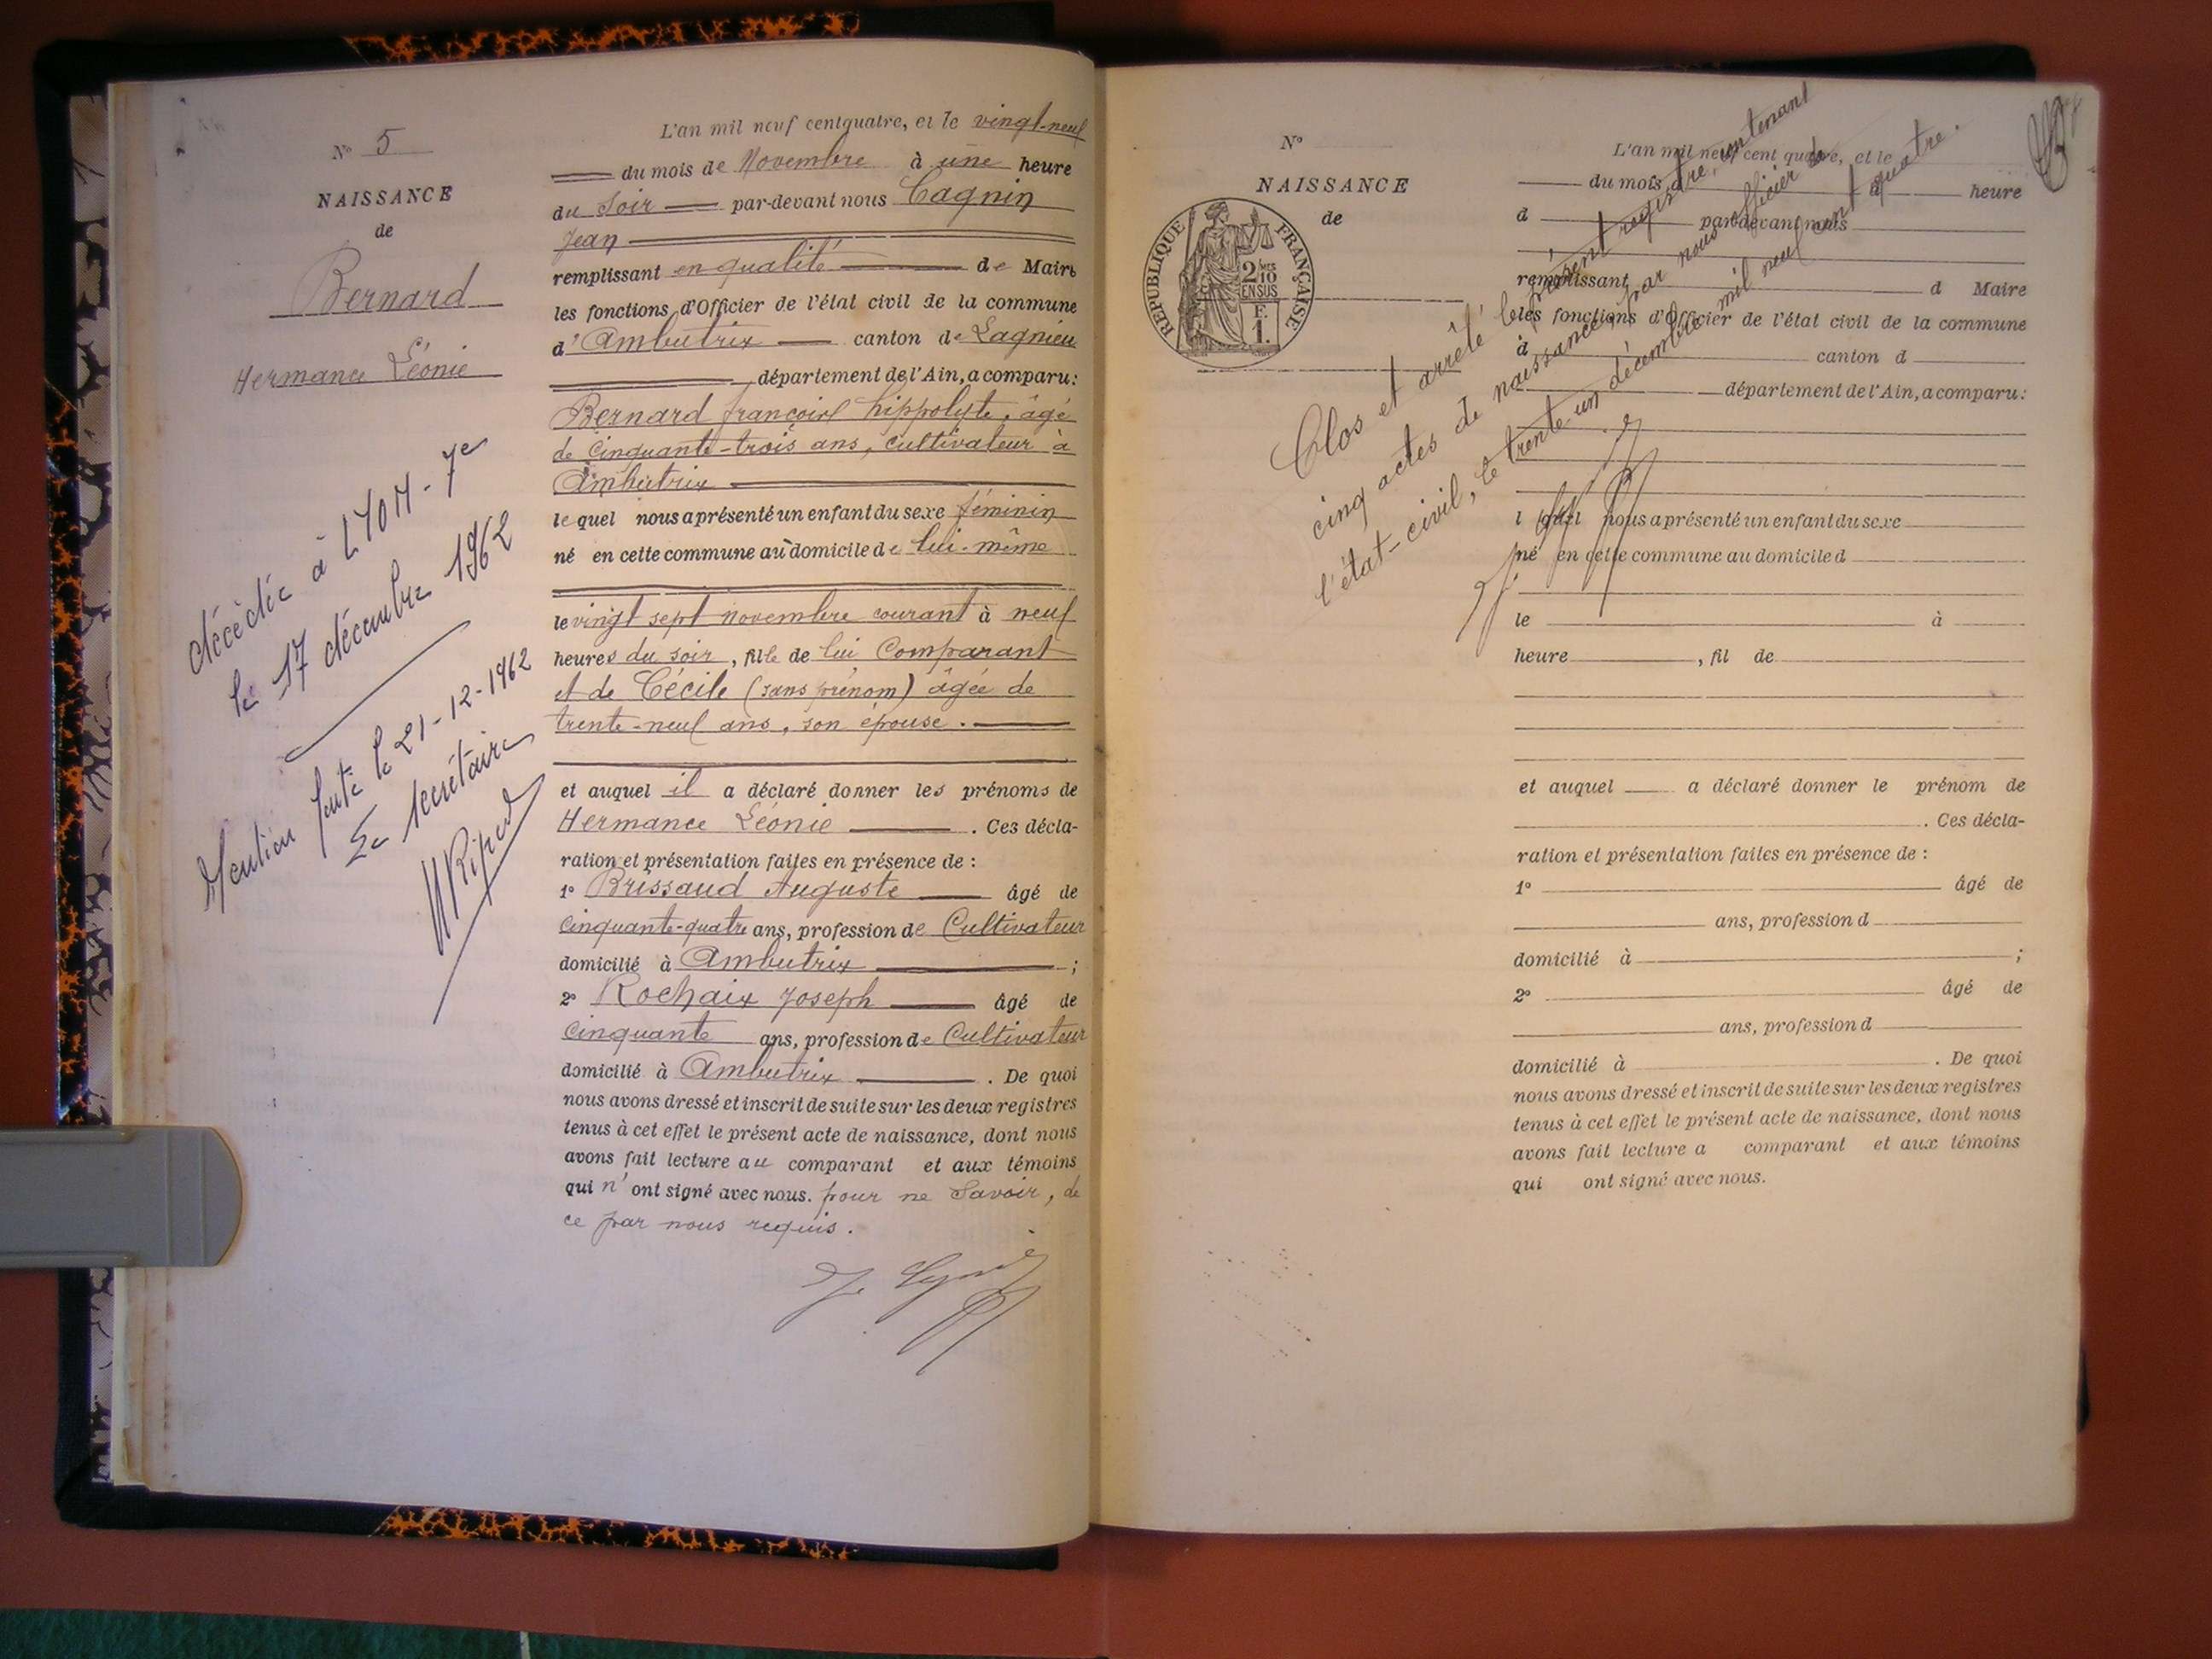 N° 5
NAISSANCE
de
Bernard
Hermance Léonie
décédée à LYON - 7e
le 17 décembre 1962
Mention faite le 21-12-1962
Le secrétaire
L'an mil neuf cent quatre, et le vingt-neuf
du mois de Novembre à une heure
du Soir par-devant nous Cagnin
Jean
remplissant en qualité de Maire
les fonctions d'Officier de l'état civil de la commune
d'Ambutrix canton de Lagnieu
département de l'Ain, a comparu:
Bernard françois hippolyte, âgé
de Cinquante-trois ans, cultivateur à
Ambutrix
lequel nous a présenté un enfant du sexe féminin
né en cette commune au domicile de lui-même
le vingt sept novembre courant à neuf
heures du soir, fille de lui Comparant
et de Cécile (sans prénom) âgée de
trente-neuf ans, son épouse.
et auquel il a déclaré donner les prénoms de
Hermance Léonie. Ces décla-
ration et présentation faites en présence de :
1° Brissaud Auguste âgé de
Cinquante-quatre ans, profession de Cultivateur
domicilié à Ambutrix ;
2° Rochaix Joseph âgé de
Cinquante ans, profession de Cultivateur
domicilié à Ambutrix. De quoi
nous avons dressé et inscrit de suite sur les deux registres
tenus à cet effet le présent acte de naissance, dont nous
avons fait lecture au comparant et aux témoins
qui n'ont signé avec nous. pour ne Savoir, de
ce par nous requis.
N°
NAISSANCE
de
RÉPUBLIQUE FRANÇAISE
2 MES
10
EN SUS
F.
1.
Clos et arrêté le présent registre, contenant
cinq actes de naissance, par nous officier de
l'état-civil, le trente-un décembre mil neuf cent quatre.
L'an mil neuf cent quatre, et le
du mois d à heure
d par-devant nous
remplissant d Maire
les fonctions d'Officier de l'état civil de la commune
d canton d
département de l'Ain, a comparu:
l quel nous a présenté un enfant du sexe
né en cette commune au domicile d
le à
heure , fil de
et auquel a déclaré donner le prénom de
. Ces décla-
ration et présentation faites en présence de :
1° âgé de
ans, profession d
domicilié à ;
2° âgé de
ans, profession d
domicilié à . De quoi
nous avons dressé et inscrit de suite sur les deux registres
tenus à cet effet le présent acte de naissance, dont nous
avons fait lecture a comparant et aux témoins
qui ont signé avec nous.